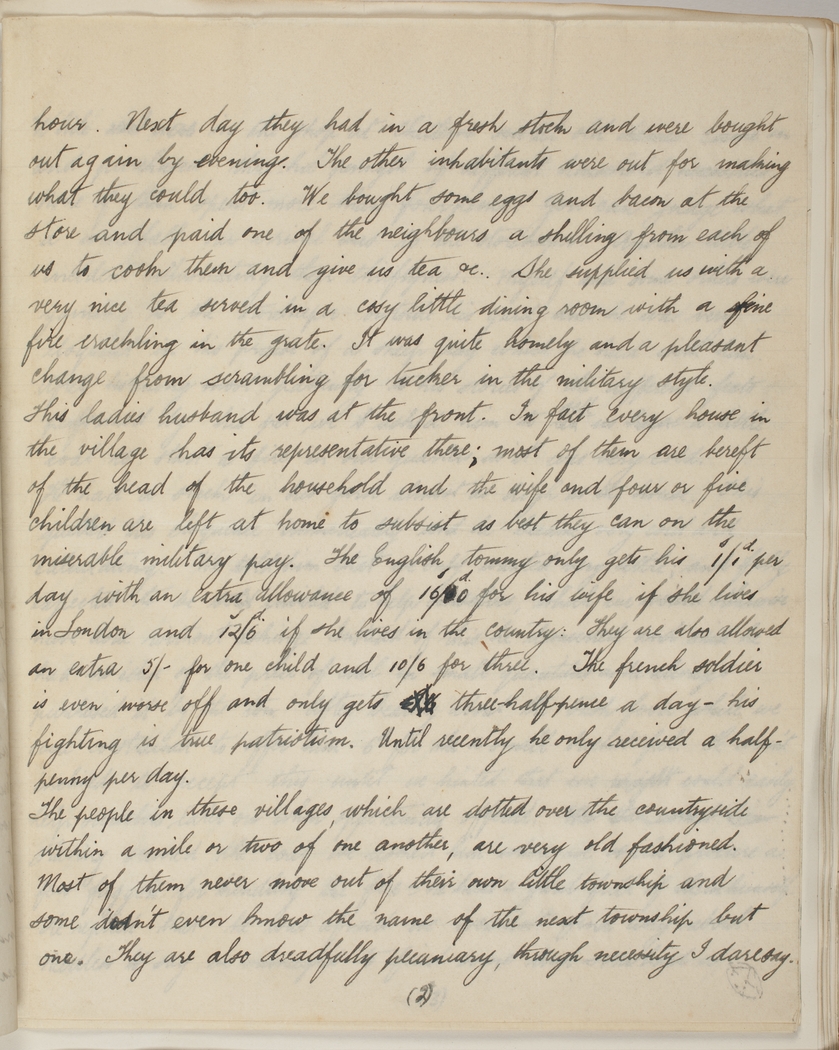 hour. Next day they had in a fresh stock and were bought
out again by evening. The other inhabitants were out for making
what they could too. We bought some eggs and bacon at the
store and paid one of the neighbours a shilling from each of
us to cook them and give us tea &c.. She supplied us with a
very nice tea served in a cosy little dining room with a fine
fire crackling in the grate. It was quite homely and a pleasant
change from scrambling for tucker in the military style.
This ladies husband was at the front. In fact every house in
the village has its representative there; most of them are bereft
of the head of the household and the wife and four or five
children are left at home to subsist as best they can on the
miserable military pay. The English tommy only gets his 1/1d per
day with an extra allowance of for his wife if she lives
in London and 12/6d if she lives in the country: They are also allowed
an extra 5/- for one child and 10/6 for three. The french soldier
is even worse off and only gets three-half-pence a day - his
fighting is true patriotism. Until recently he only received a half-
penny per day.
The people in these villages, which are dotted over the countryside
within a mile or two of one another, are very old fashioned.
Most of them never move out of their own little township and
some even know the name of the next township but
one. They are also dreadfully pecuniary, through necessity I daresay.
(2)